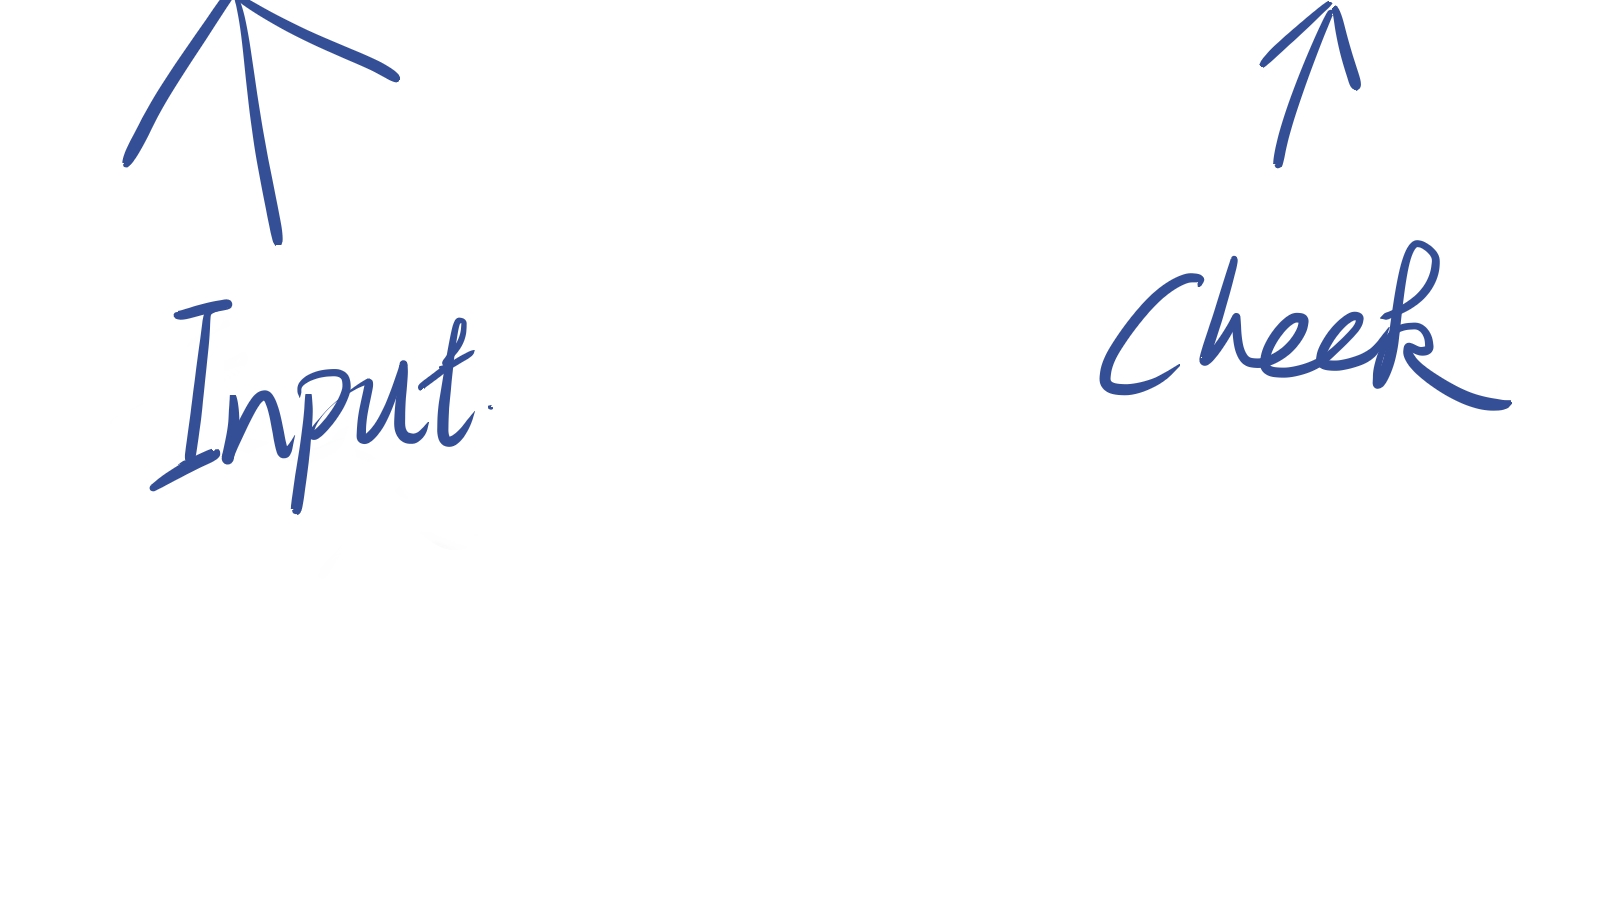 Input.
Cheek